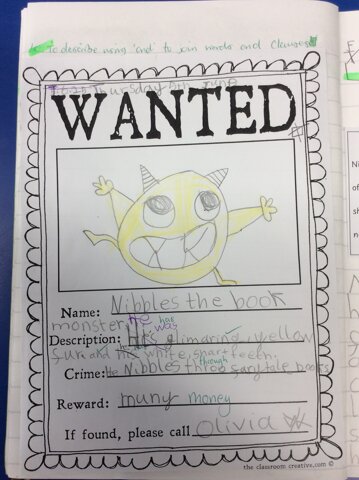 To describe using 'and' to join words and Clauses
Thursday 8th June
WANTED
Name: Nibbles the book
monster. he has
Description: his was glimaring yellow
fur and his white, sharp teeth.
Crime: He Nibbles throo through fairytale books
Reward: muny money
If found, please call Olivia
the classroom creative.com